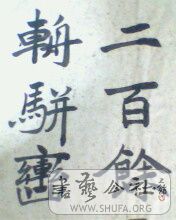 二百餘
輧駢
書藝公社
WWW.SHUFA.ORG